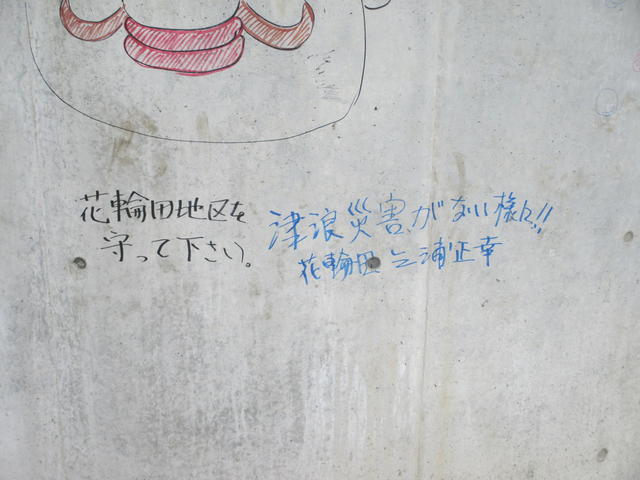 花輪田地区を
守って下さい。
津浪災害がない様に!!
花輪田 三浦正幸